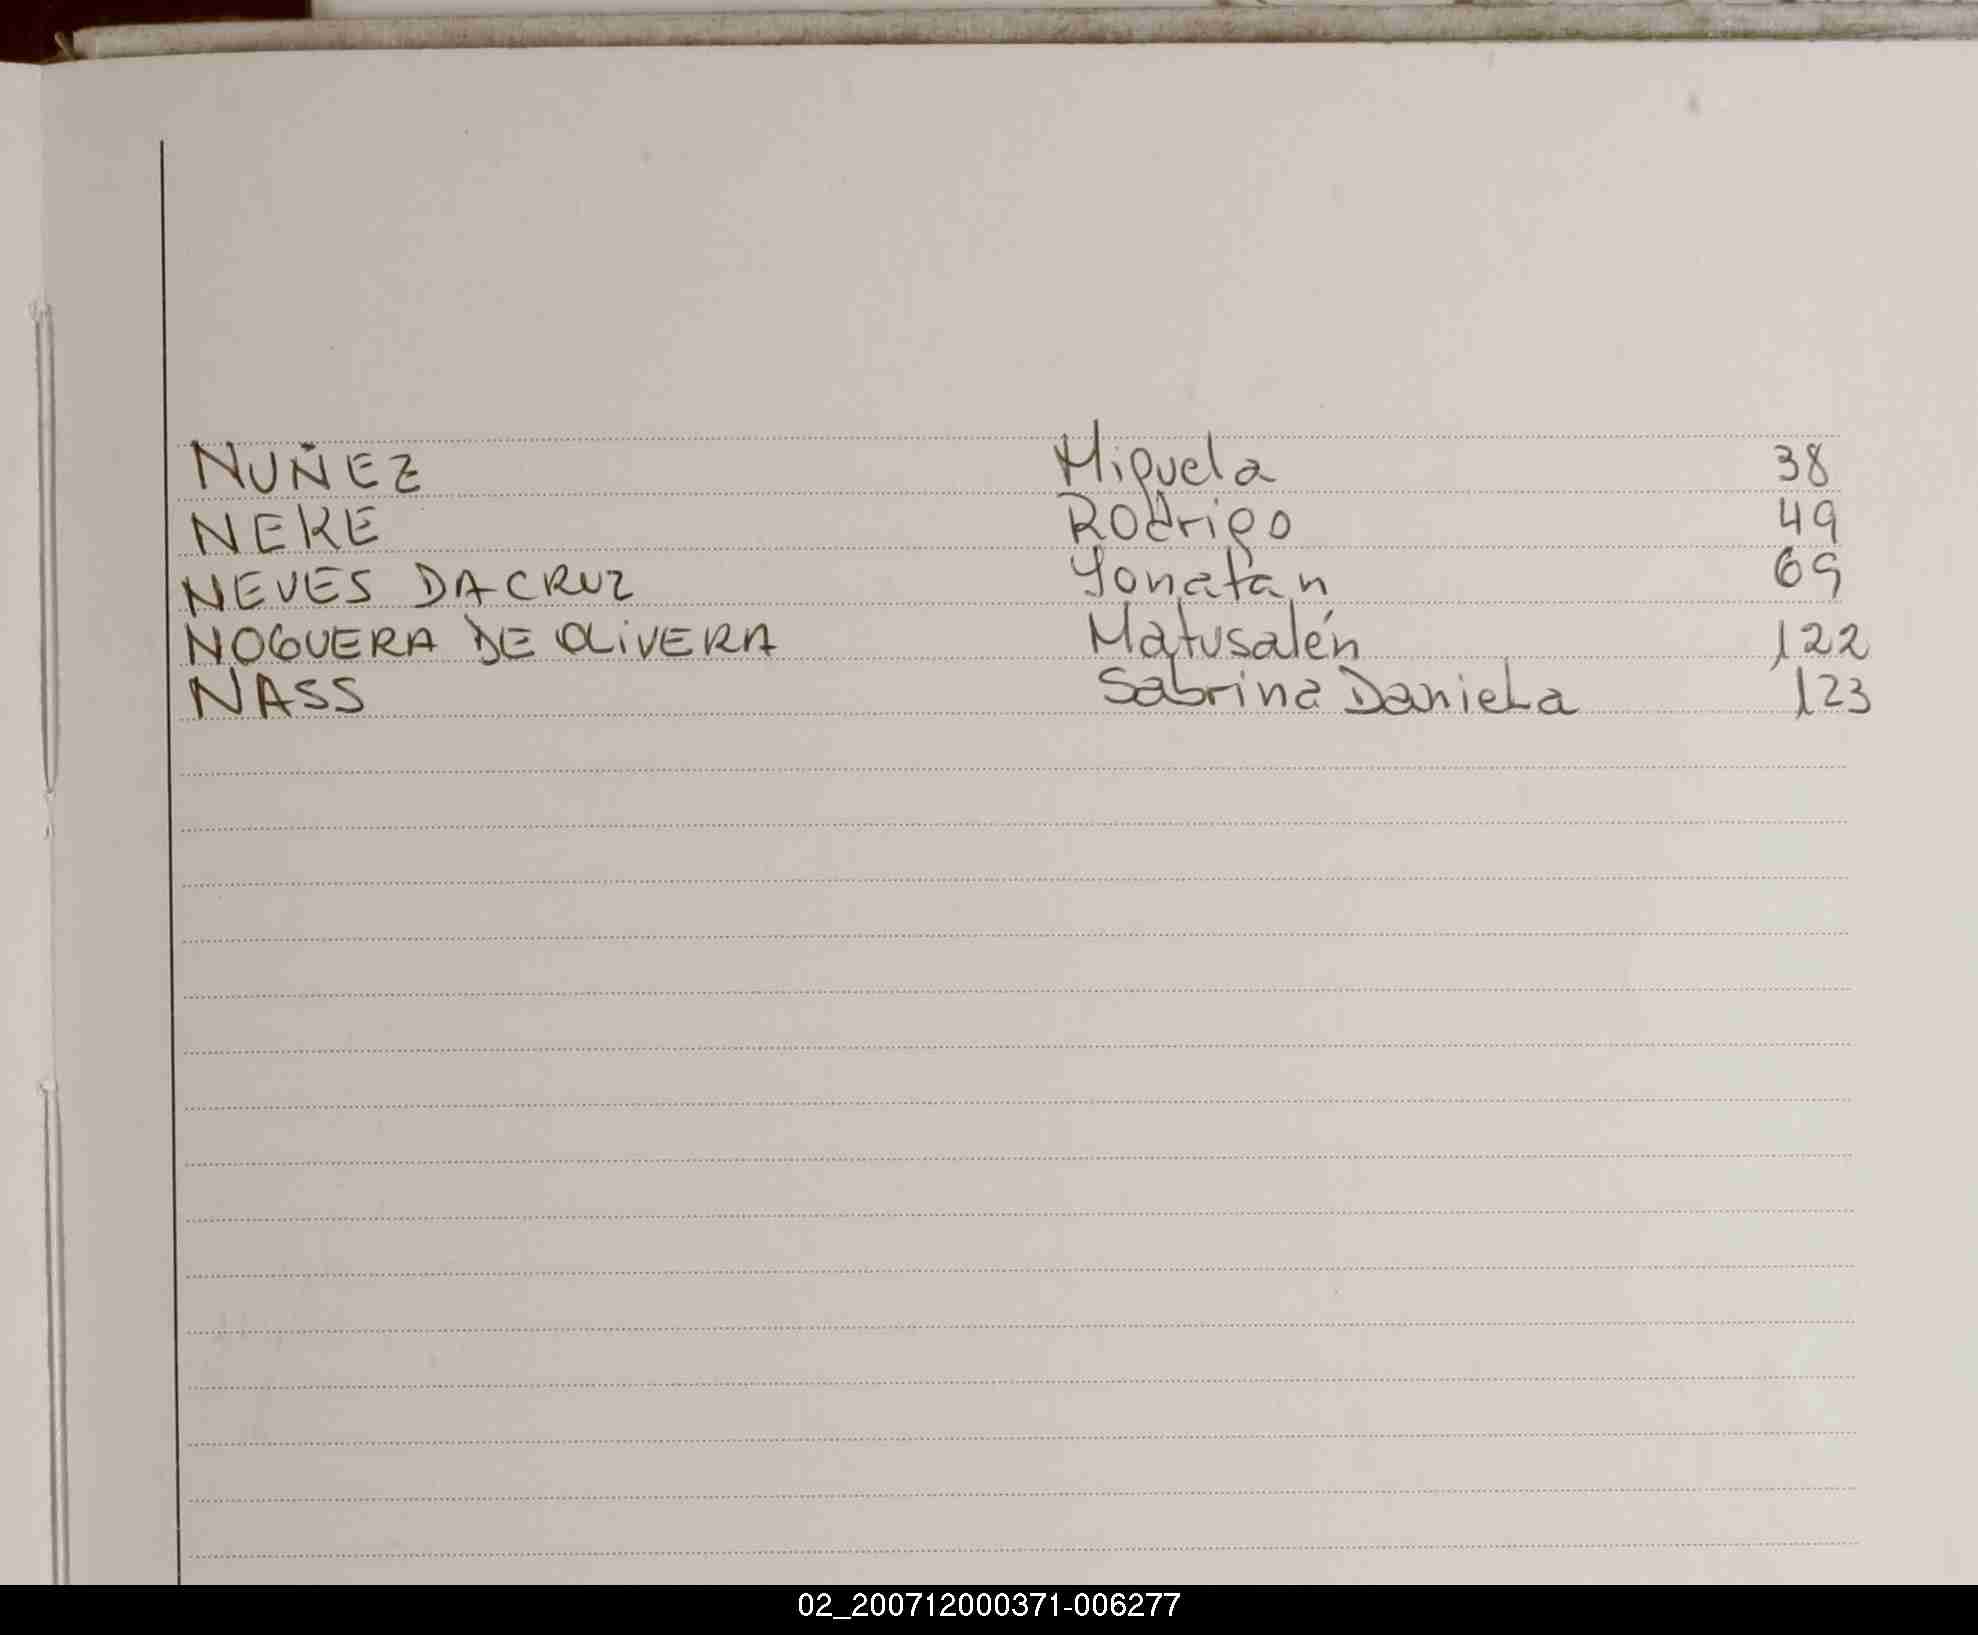 NUÑEZ Miguela 38
NEKE Rodrigo 49
NEVES DA CRUZ Yonatan 69
NOGUERA DE OLIVERA Matusalén 122
NASS Sabrina Daniela 123
02_200712000371-006277